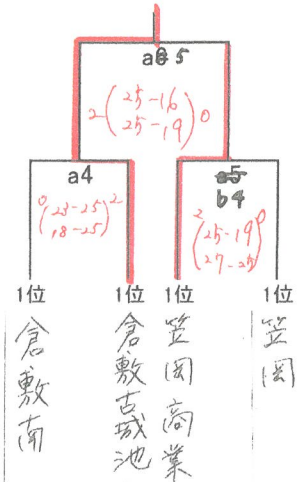 a5
2 (25-16 25-19) 0
a4
0 (23-25 18-25) 2
b4
2 (25-19 27-25) 0
1位 1位 1位 1位
倉敷南
倉敷古城池
笠岡商業
笠岡